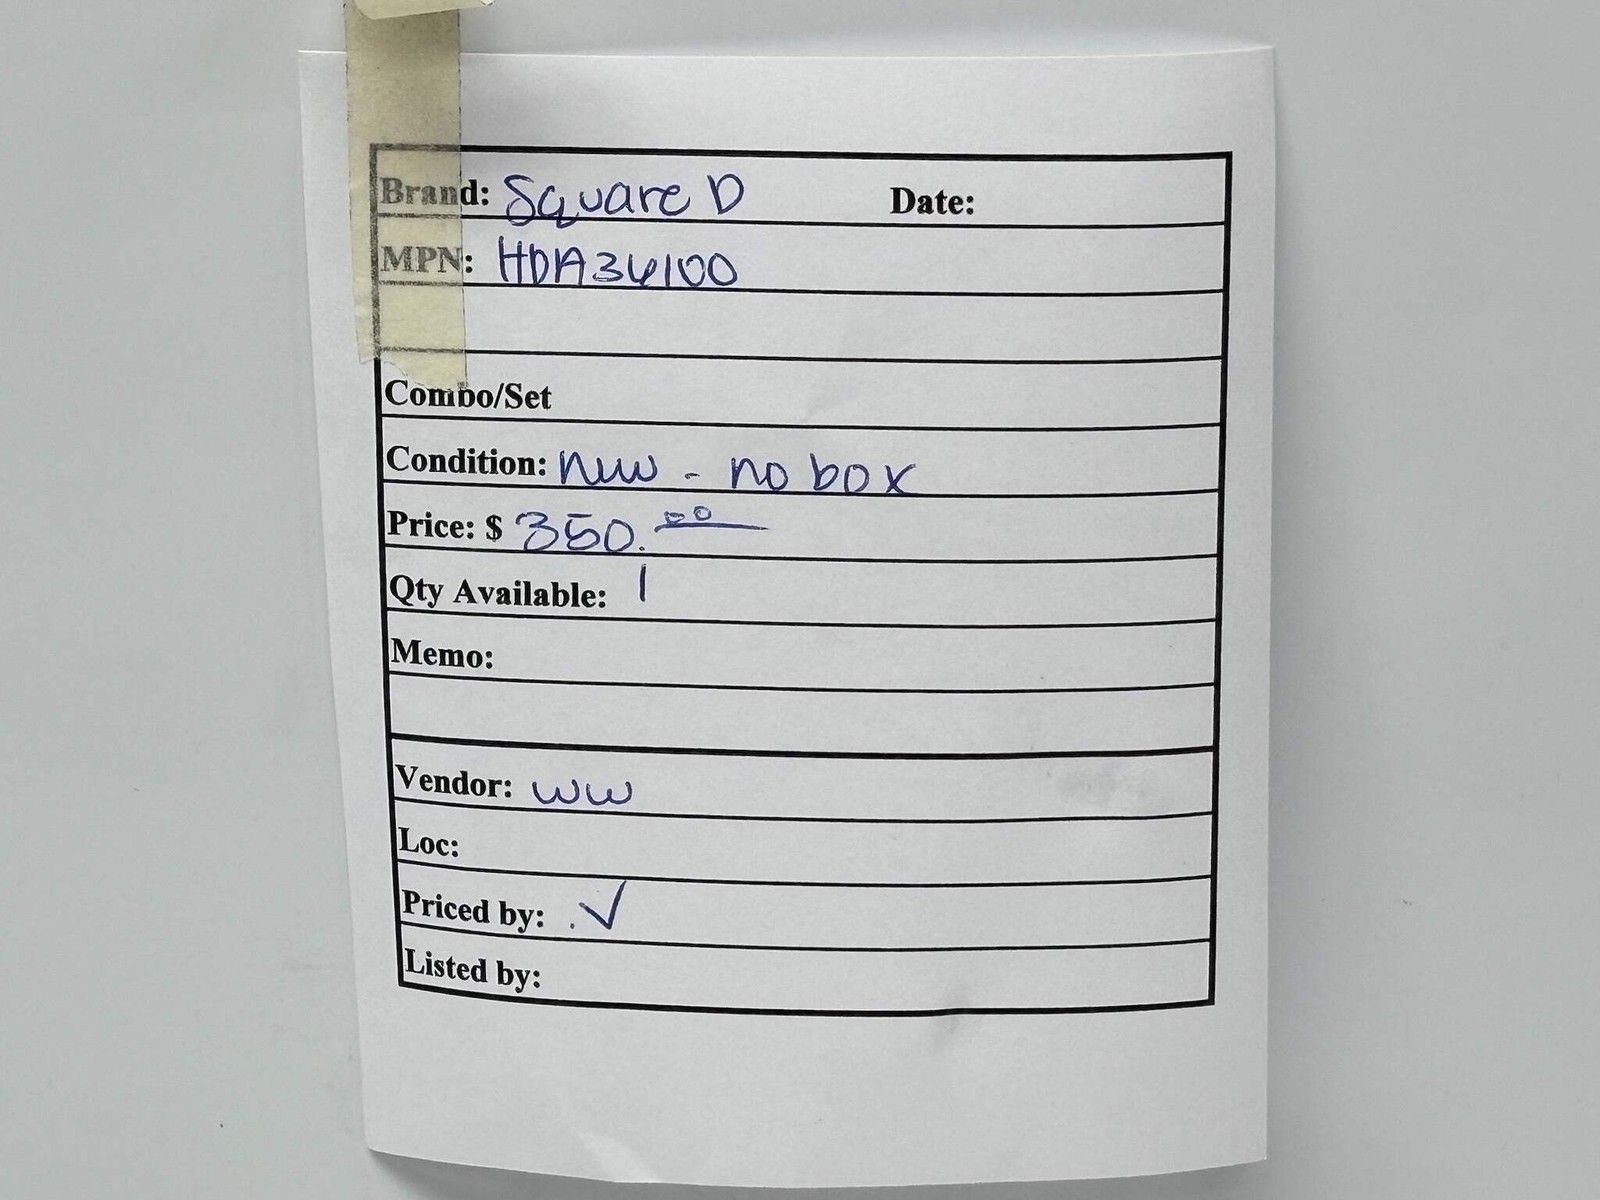 Brand: Square D Date:
MPN: HDA36100
Combo/Set
Condition: new - no box
Price: $ 350.00
Qty Available: 1
Memo:
Vendor: WW
Loc:
Priced by: ✓
Listed by: